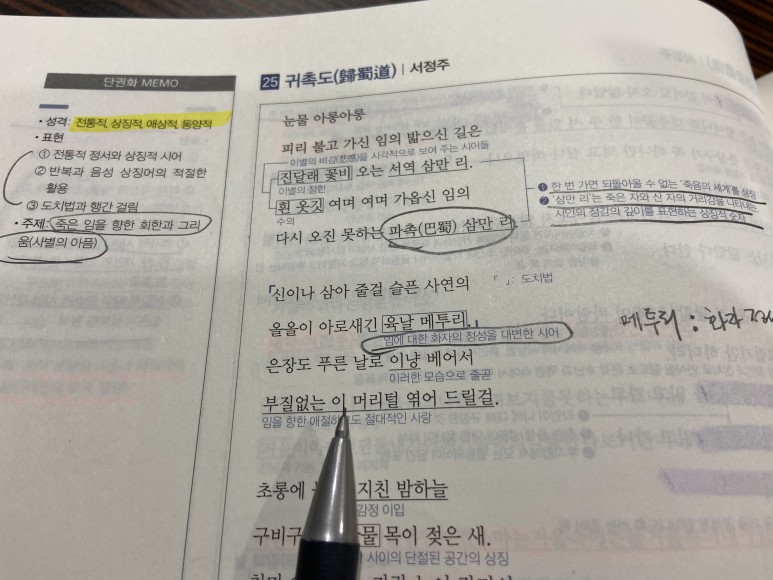 단권화 MEMO
• 성격: 전통적, 상징적, 애상적, 동양적
• 표현
① 전통적 정서와 상징적 시어
② 반복과 음성 상징어의 적절한
활용
③ 도치법과 행간 걸림
• 주제: 죽은 임을 향한 회한과 그리
움(사별의 아픔)
25 귀촉도(歸蜀道) | 서정주
눈물 아롱아롱
피리 불고 가신 임의 밟으신 길은
이별의 비감(悲感)을 시각적으로 보여 주는 시어들
진달래 꽃비 오는 서역 삼만 리.
이별의 정한
흰 옷깃 여며 여며 가옵신 임의
수의
다시 오진 못하는 파촉(巴蜀) 삼만 리.
❶ 한 번 가면 되돌아올 수 없는 '죽음의 세계'를 설정
❷ '삼만 리'는 죽은 자와 산 자의 거리감을 나타내는,
시인의 정감의 깊이를 표현하는 상징적 숫자
「신이나 삼아 줄걸 슬픈 사연의
「 」: 도치법
올올이 아로새긴 육날 메투리.」
임에 대한 화자의 정성을 대변한 시어
메투리 : 화자
은장도 푸른 날로 이냥 베어서
이러한 모습으로 줄곧
부질없는 이 머리털 엮어 드릴걸.
임을 향한 애절 절대적인 사랑
초롱에 지친 밤하늘
감정 이입
구비구 물 목이 젖은 새.
사이의 단절된 공간의 상징